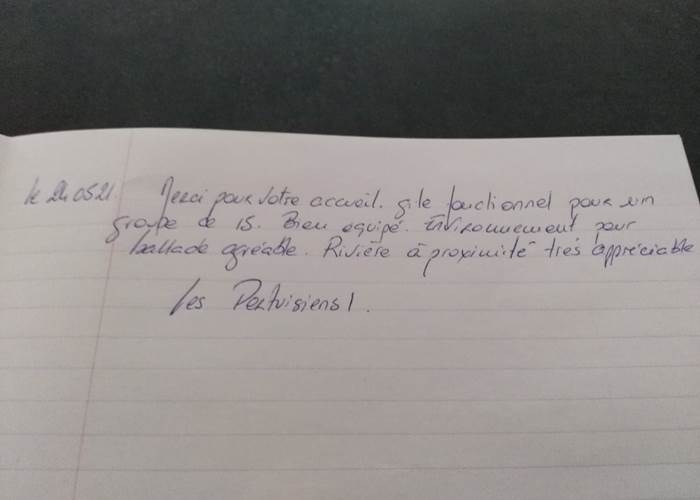 le 24 05 21 Merci pour votre accueil. gîte fonctionnel pour un
groupe de 15. Bien équipé. Environnement pour
ballade agréable. Rivière à proximité très appréciable
Les Pertuisiens !